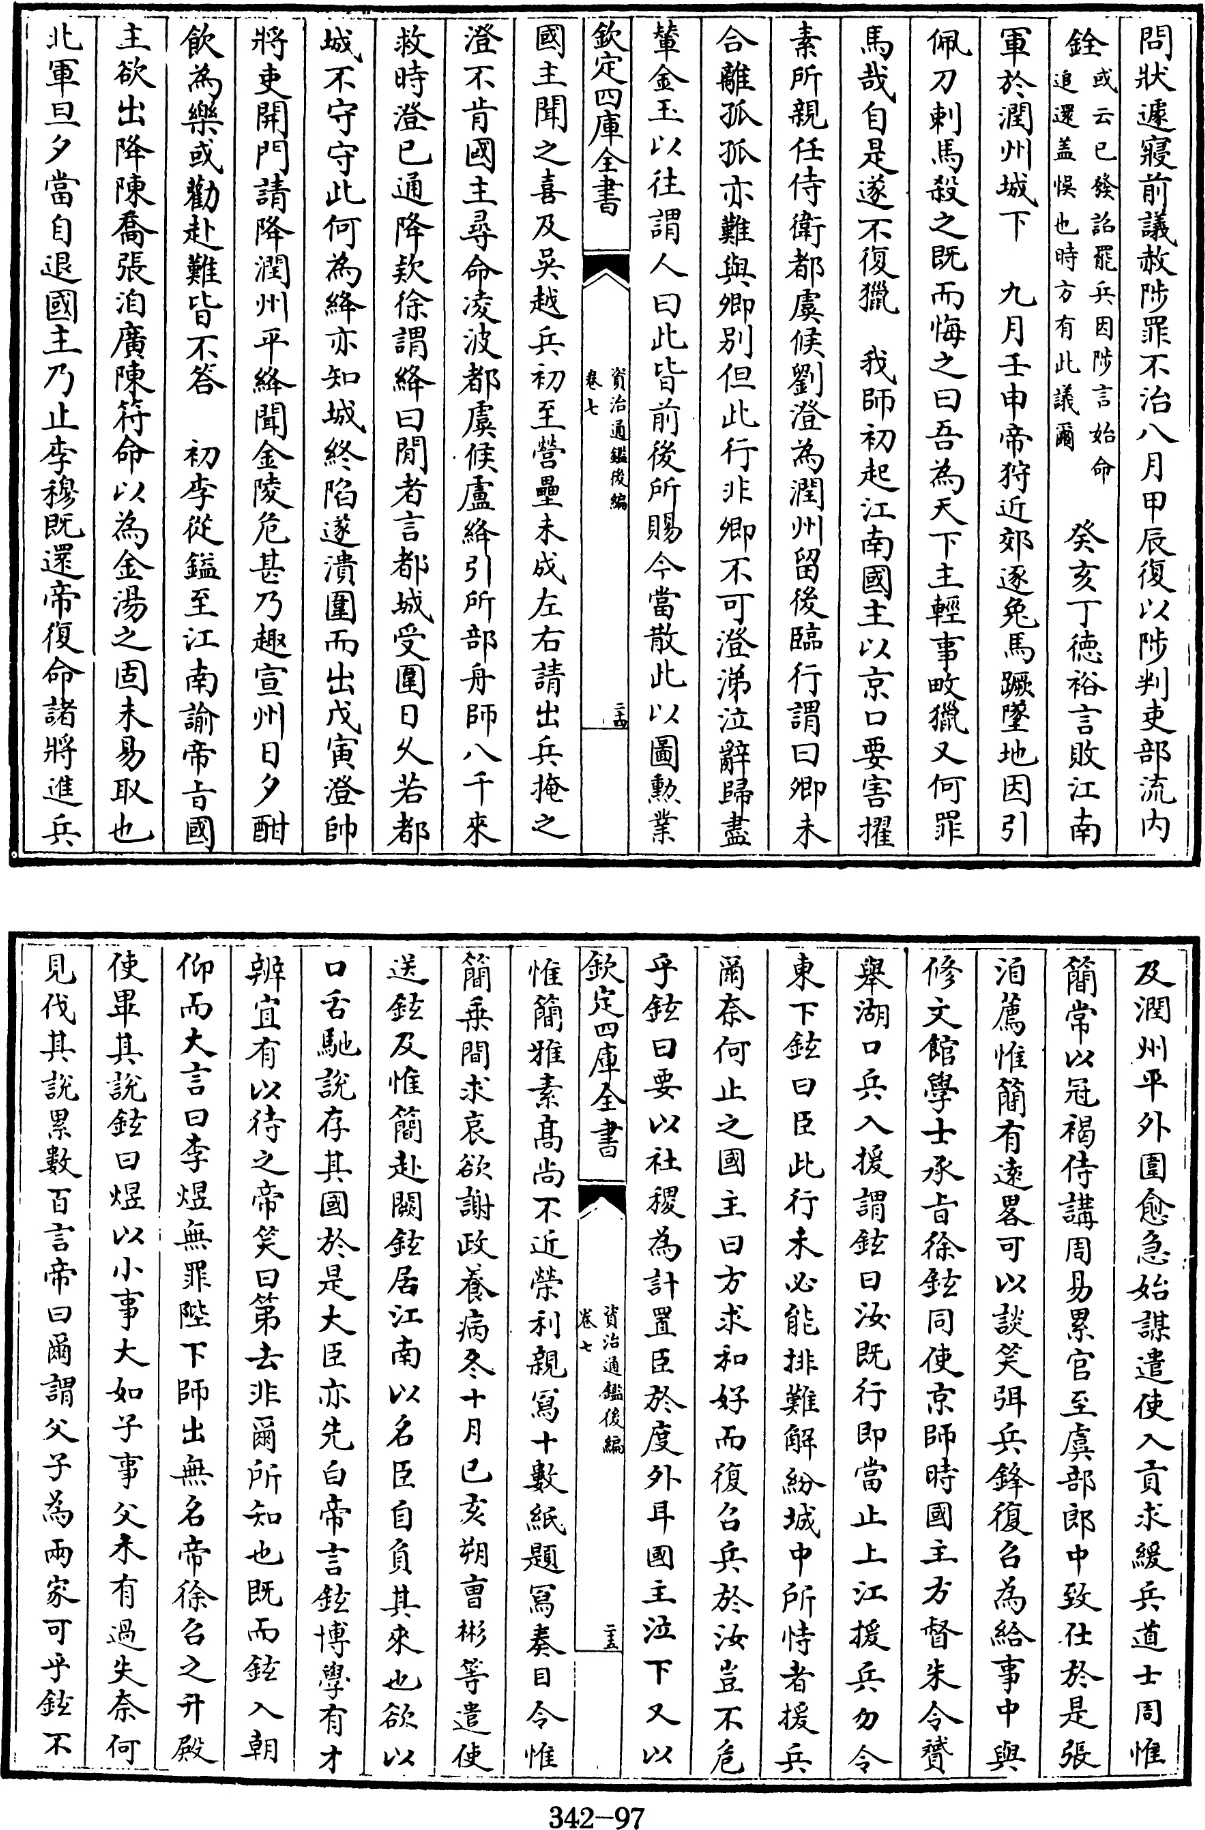 問狀遽寢前議赦陟罪不治八月甲辰復以陟判吏部流内
銓或云已發詔罷兵因陟言始命追還盖悞也時方有此議爾 癸亥丁德裕言敗江南
軍於潤州城下 九月壬申帝狩近郊逐兔馬蹶墜地因引
佩刀刺馬殺之既而悔之曰吾為天下主輕事畋獵又何罪
馬哉自是遂不復獵 我師初起江南國主以京口要害擢
素所親任侍衛都虞候劉澄為潤州留後臨行謂曰卿未
合離孤孤亦難與卿别但此行非卿不可澄涕泣辭歸盡
輦金玉以往謂人曰此皆前後所賜今當散此以圖勲業
欽定四庫全書 資治通鑑後編 卷七 二十四
國主聞之喜及吳越兵初至營壘未成左右請出兵掩之
澄不肯國主尋命凌波都虞候盧絳引所部舟師八千來
救時澄已通降欵徐謂絳曰間者言都城受圍日久若都
城不守守此何為絳亦知城終陷遂潰圍而出戊寅澄帥
將吏開門請降潤州平絳聞金陵危甚乃趣宣州日夕酣
飲為樂或勸赴難皆不答 初李從鎰至江南諭帝㫖國
主欲出降陳喬張洎廣陳符命以為金湯之固未易取也
北軍旦夕當自退國主乃止李穆既還帝復命諸將進兵
及潤州平外圍愈急始謀遣使入貢求緩兵道士周惟
簡常以冠褐侍講周易累官至虞部郎中致仕於是張
洎薦惟簡有遠畧可以談笑弭兵鋒復召為給事中與
修文館學士承㫖徐鉉同使京師時國主方督朱令贇
舉湖口兵入援謂鉉曰汝既行即當止上江援兵勿令
東下鉉曰臣此行未必能排難解紛城中所恃者援兵
爾奈何止之國主曰方求和好而復召兵於汝豈不危
乎鉉曰要以社稷為計置臣於度外耳國主泣下又以
欽定四庫全書 資治通鑑後編 卷七 二十五
惟簡雅素髙尚不近榮利親寫十數紙題寫奏目令惟
簡乗間求哀欲謝政養病冬十月己亥朔曹彬等遣使
送鉉及惟簡赴闕鉉居江南以名臣自負其來也欲以
口舌馳說存其國於是大臣亦先白帝言鉉博學有才
辨宜有以待之帝笑曰第去非爾所知也既而鉉入朝
仰而大言曰李煜無罪陛下師出無名帝徐召之升殿
使畢其說鉉曰煜以小事大如子事父未有過失奈何
見伐其說累數百言帝曰爾謂父子為兩家可乎鉉不
342-97